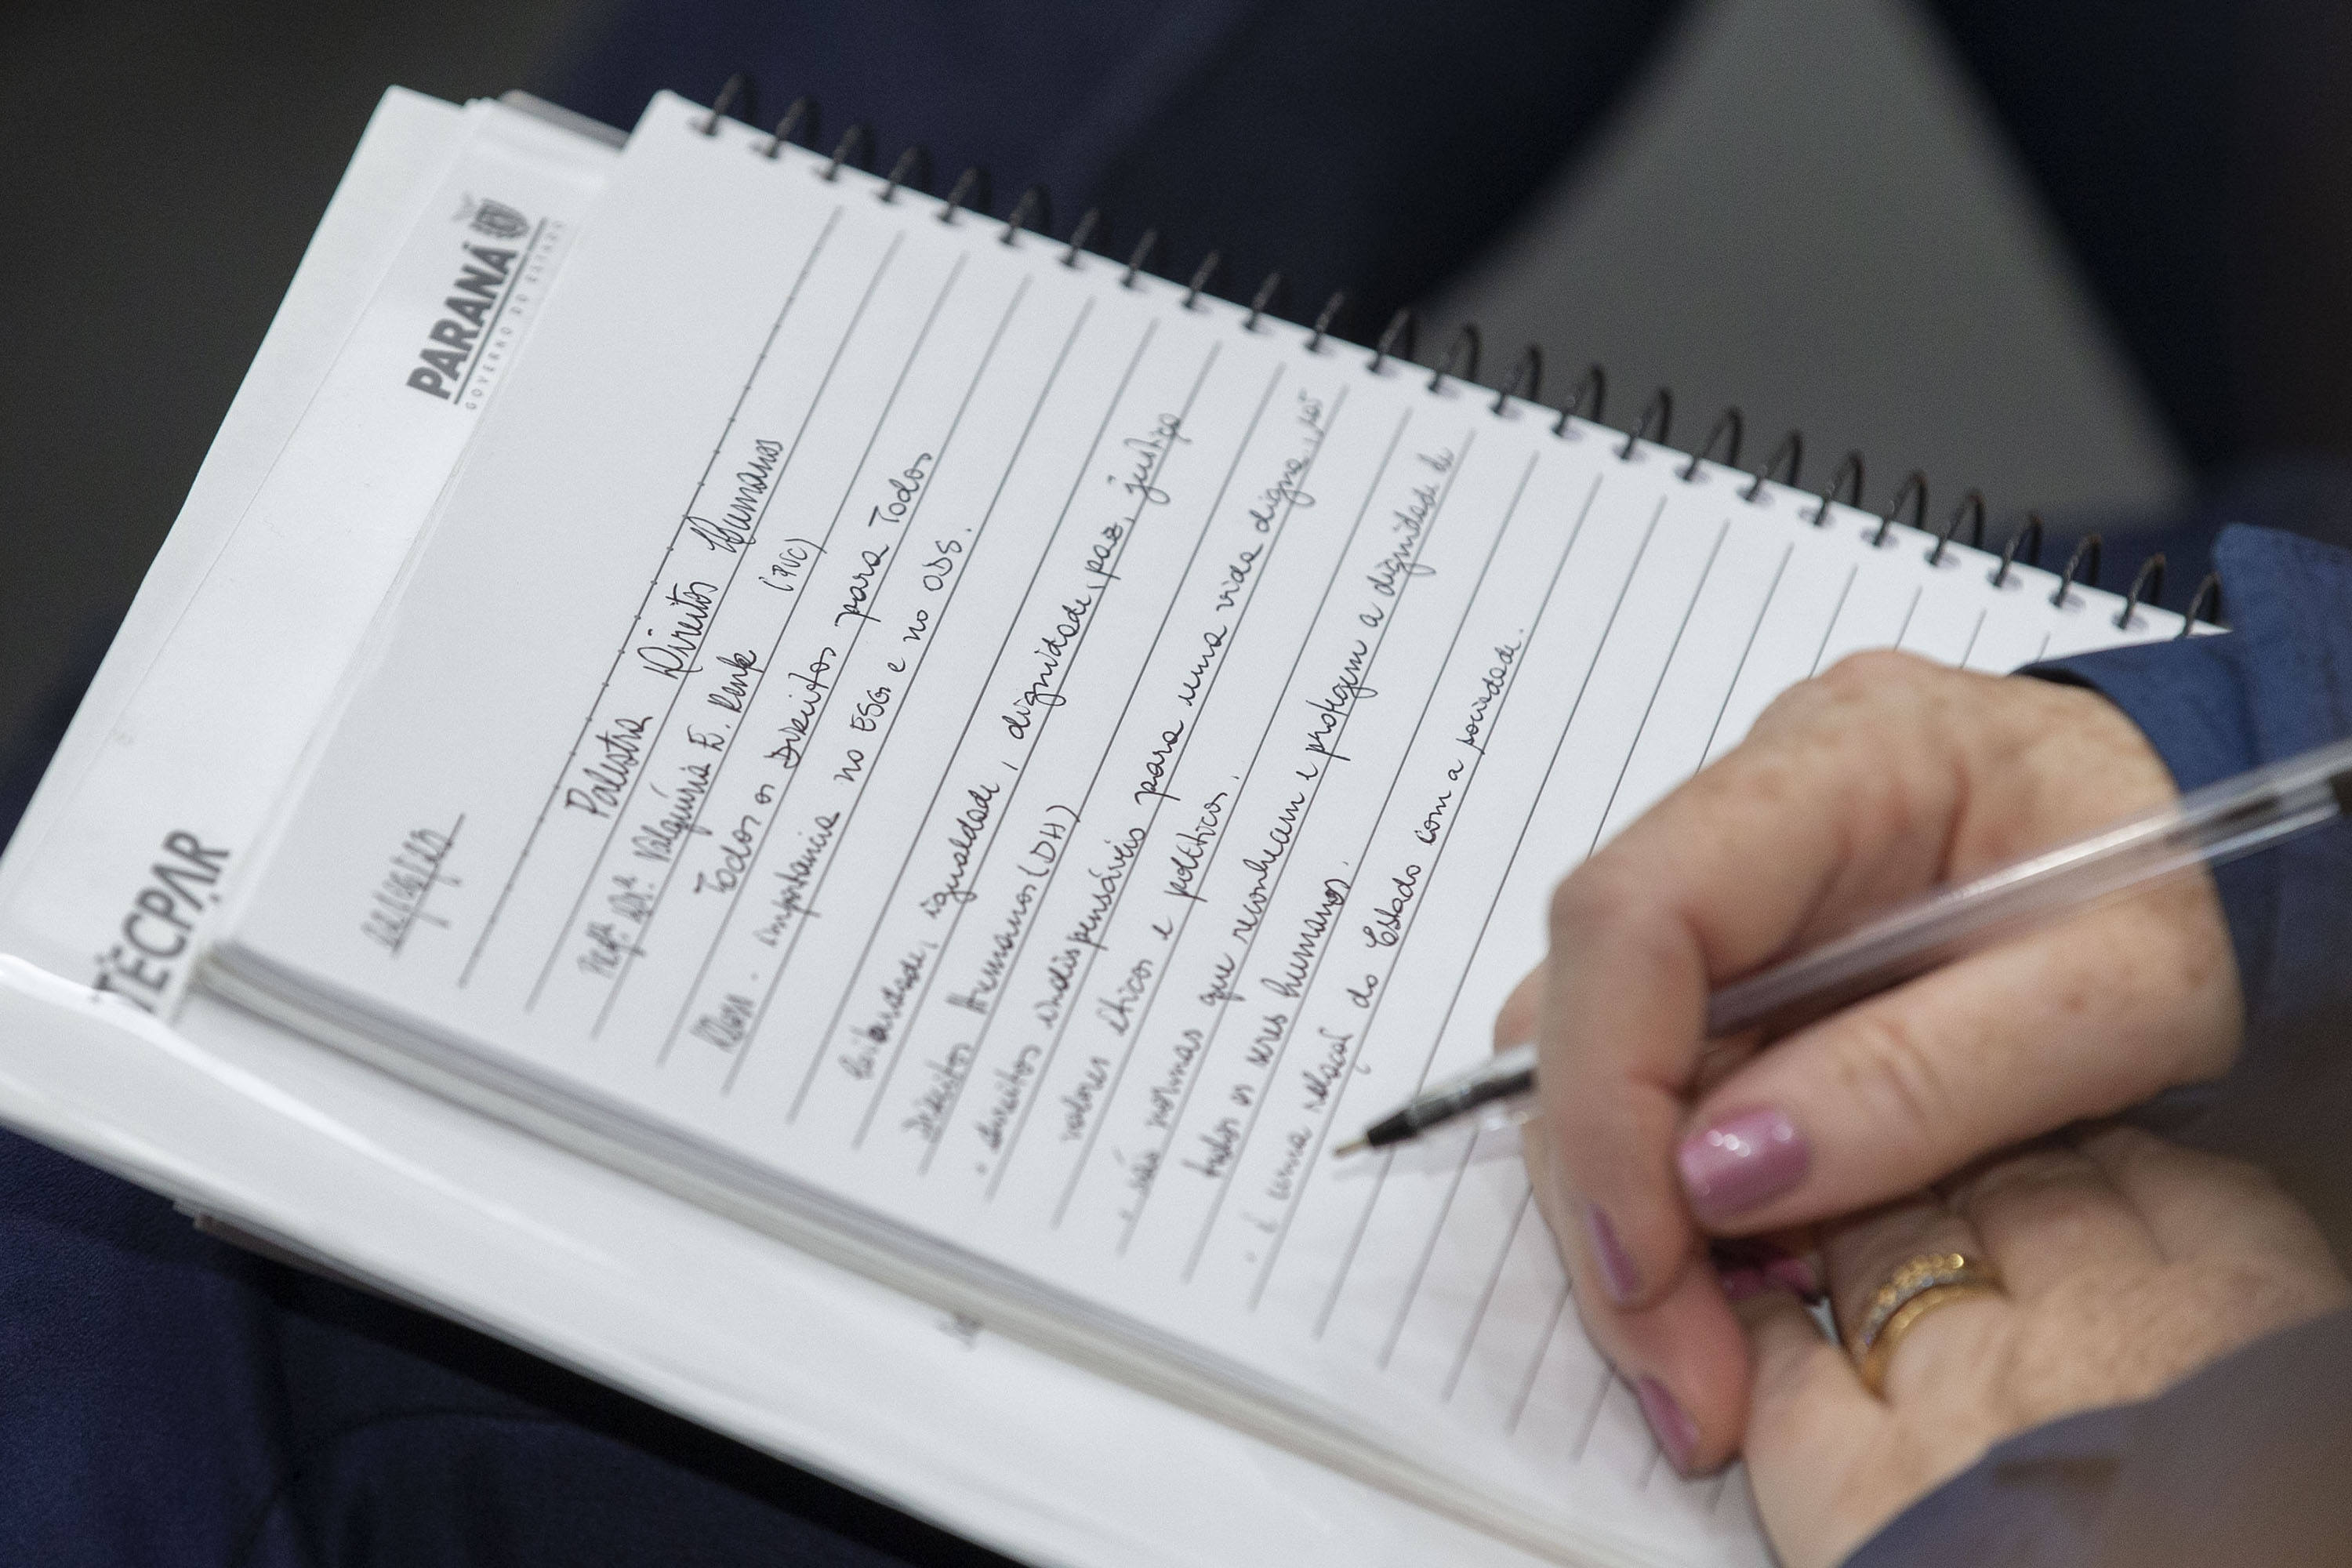 PARANÁ
GOVERNO DO ESTADO
TECPAR
Palestra Direitos Humanos
Profª Drª. Valquíria E. Renk (PUC)
Todos os Direitos para Todos
importância no ESG e no ODS.
igualdade, dignidade, paz, justiça
Direitos Humanos (DH)
. direitos indispensáveis para uma vida digna, são
valores éticos e políticos.
. são normas que reconhecem e protegem a dignidade de
todos os seres humanos.
. é uma relação do Estado com a sociedade.